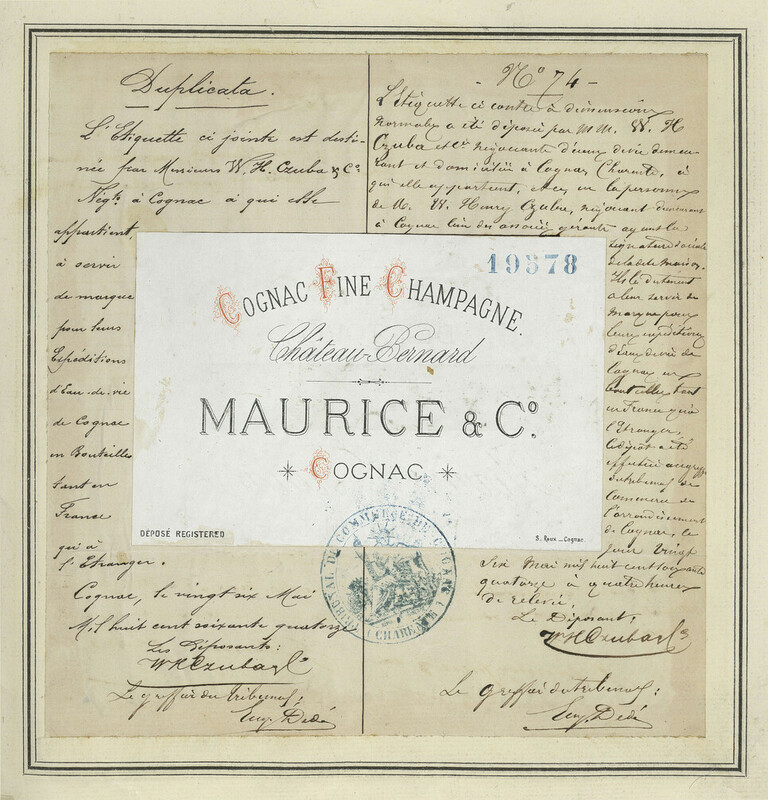 Duplicata.
L'Etiquette ci jointe est desti-
née par Messieurs W. H. Czuba & Cº
Négts à Cognac à qui elle
appartient,
à servir
de marque
pour leurs
Expéditions
d'Eau-de-vie
de Cognac
en Bouteilles
tant en
France
qu'à
l'Etranger.
Cognac, le vingt six Mai
Mil huit cent soixante quatorze
Les Déposants:
W H Czuba & Cº
Le greffier du tribunal:
Eug. Dédé
- Nº 74 -
L'Etiquette ci contre à dimensions
normales a été déposée par M.M. W. H
Czuba et Cie Négociants d'eaux de vie demeu-
rant et domiciliés à Cognac, Charente, à
qui elle appartient, et en la personne
de M. W. Henry Czuba, négociant demeurant
à Cognac l'un des associés gérants ayant la
signature sociale
de la dite maison.
Ils la destinent
à leur servir de
marque pour
leurs expéditions
d'Eaux de vie de
Cognac en
bouteilles tant
en France qu'à
l'Etranger,
Le dépôt a été
effectué au greffe
du tribunal de
Commerce de
l'arrondissement
de Cognac, le
jour vingt
Six Mai mil huit cent soixante
quatorze à quatre heures
de relevée.
Le Déposant,
W H Czuba & Cº
Le greffier du tribunal:
Eug. Dédé
19578
COGNAC FINE CHAMPAGNE.
Château-Bernard
MAURICE & Cº.
COGNAC
DÉPOSÉ REGISTERED
S. Roux _ Cognac.
TRIBUNAL DE COMMERCE DE COGNAC (CHARENTE)